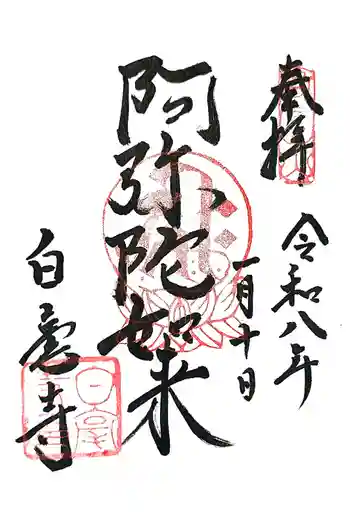 奉拝
令和八年
一月十日
阿弥陀如来
白毫寺